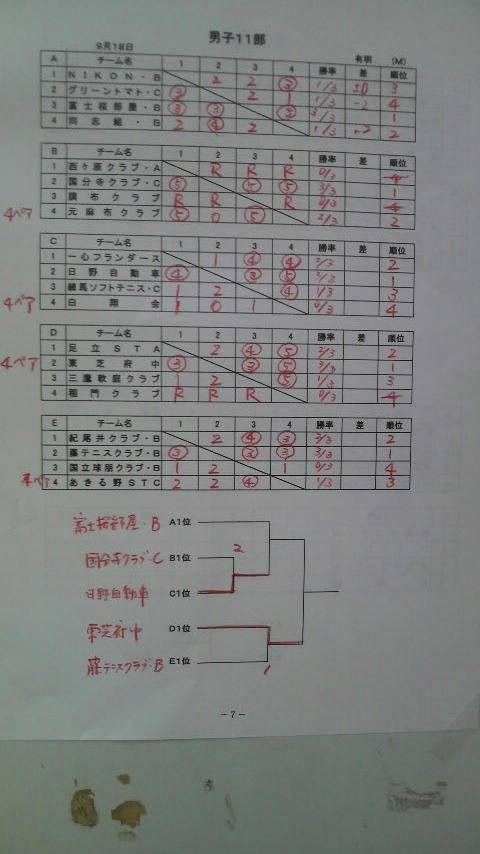 男子11部
9月18日 有明 (M)
A チーム名 1 2 3 4 勝率 差 順位
1 NIKON・B 2 2 ③ 1/3 ±0 3
2 グリーントマト・C ③ 2 1 1/3 -2 4
3 富士桜部屋・B ③ ③ ③ 3/3 1
4 同志組・B 2 ④ 2 1/3 +2 2
B チーム名 1 2 3 4 勝率 差 順位
1 西ヶ原クラブ・A R R R 0/3 4
2 国分寺クラブ・C ⑤ ⑤ ⑤ 3/3 1
3 調布クラブ R R R 0/3 4
4ペア 4 元麻布クラブ ⑤ 0 ⑤ 2/3 2
C チーム名 1 2 3 4 勝率 差 順位
1 一心フランダース 1 ④ ④ 2/3 2
2 日野自動車 ④ ③ ⑤ 3/3 1
3 練馬ソフトテニス・C 1 2 ④ 1/3 3
4ペア 4 白翔会 1 0 1 0/3 4
D チーム名 1 2 3 4 勝率 差 順位
1 足立STA 2 ④ ⑤ 2/3 2
4ペア 2 東芝府中 ③ ③ ⑤ 3/3 1
3 三鷹軟庭クラブ 1 2 ⑤ 1/3 3
4 稲門クラブ R R R 4
E チーム名 1 2 3 4 勝率 差 順位
1 紀尾井クラブ・B 2 ④ ③ 2/3 2
2 藤テニスクラブ・B ③ ③ ③ 3/3 1
3 国立球朋クラブ・B 1 2 1 0/3 4
4ペア 4 あきる野STC 2 2 ④ 1/3 3
富士桜部屋・B A1位
2
国分寺クラブ・C B1位
日野自動車 C1位
東芝府中 D1位
藤テニスクラブ・B E1位
1
－7－